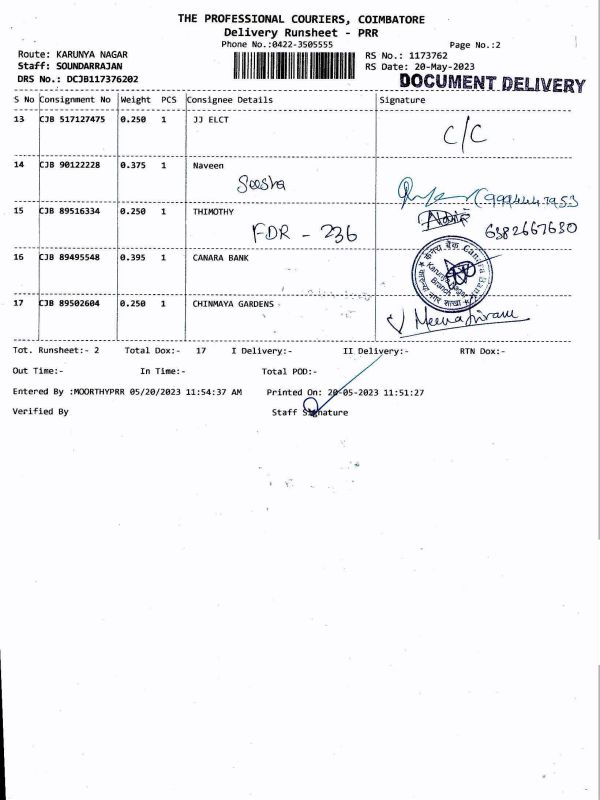 THE PROFESSIONAL COURIERS, COIMBATORE
Delivery Runsheet - PRR
Phone No.:0422-3505555 Page No.:2
Route: KARUNYA NAGAR RS No.: 1173762
Staff: SOUNDARRAJAN RS Date: 20-May-2023
DRS No.: DCJB117376202 DOCUMENT DELIVERY
S No Consignment No Weight PCS Consignee Details Signature
13 CJB 517127475 0.250 1 JJ ELCT C/C
14 CJB 90122228 0.375 1 Naveen
Seesha
15 CJB 89516334 0.250 1 THIMOTHY
FDR - 236 6382667630
16 CJB 89495548 0.395 1 CANARA BANK
17 CJB 89502604 0.250 1 CHINMAYA GARDENS
Tot. Runsheet:- 2 Total Dox:- 17 I Delivery:- II Delivery:- RTN Dox:-
Out Time:- In Time:- Total POD:-
Entered By :MOORTHYPRR 05/20/2023 11:54:37 AM Printed On: 20-05-2023 11:51:27
Verified By Staff Signature